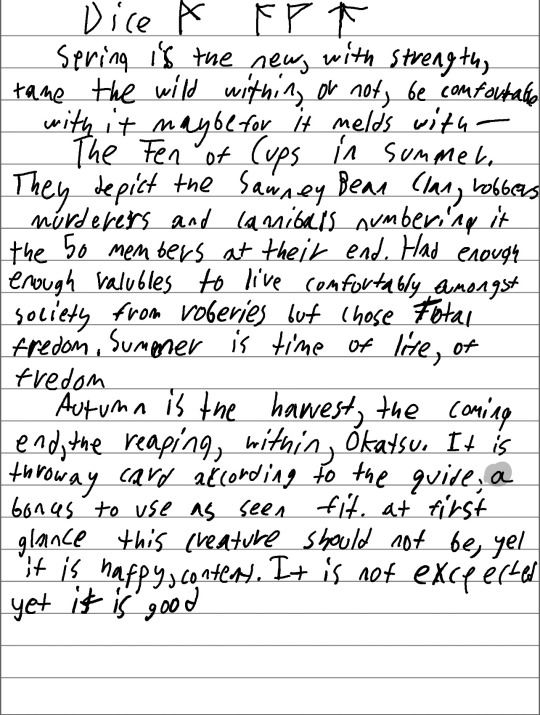 Dice ᚩ ᚪ ᚹ ᛏ
Spring is the new, with strength,
tame the wild within, or not, be comfortable
with it maybe for it melds with —
The Ten of Cups in Summer.
They depict the Sawney Bean Clan, robbers
murderers and cannibals numbering it
the 50 members at their end. Had enough
enough valubles to live comfortably amongst
society from roberies but chose Total
fredom. Summer is time of life, of
fredom
Autumn is the harvest, the coming
end, the reaping, within, Okatsu. It is
throway card according to the guide, a
bonus to use as seen fit. at first
glance this creature should not be, yet
it is happy, content. It is not excpected
yet it is good